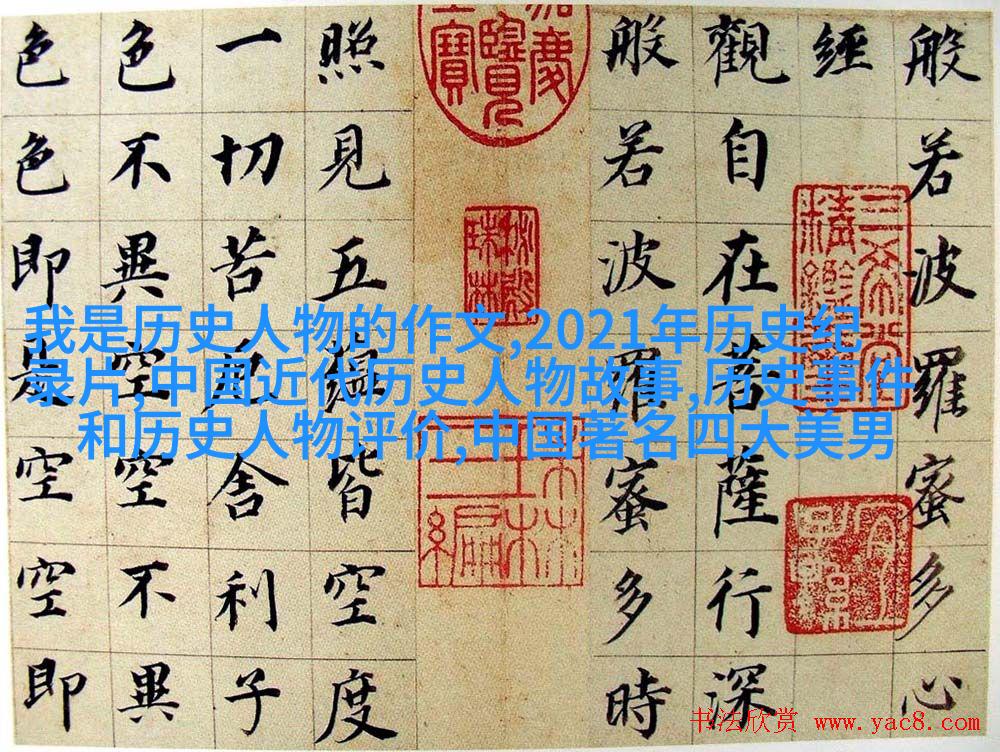 般若波羅蜜多心
經
觀自在菩薩行深
般若波羅蜜多時
照見五蘊皆空度
一切苦厄舍利子
色不異空空不異
色色即是空空即
我是历史人物的作文,2021年历史纪
录片,中国近代历史人物故事,历史事件
和历史人物评价,中国著名四大美男
书法欣赏 www.yac8.com